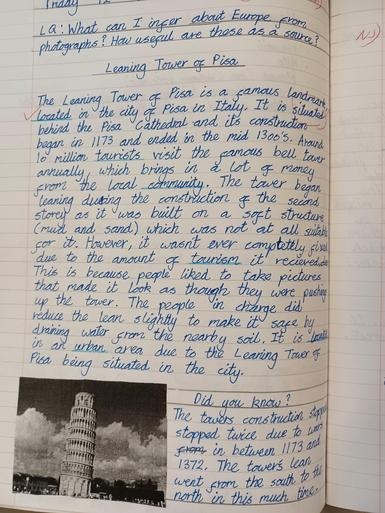 Friday 12
LQ: What can I infer about Europe from
photographs? How useful are those as a source?
Leaning Tower of Pisa
The Leaning Tower of Pisa is a famous landmark
located in the city of Pisa in Italy. It is situated
behind the Pisa Cathedral and its construction
began in 1173 and ended in the mid 1300's. Around
10 million tourists visit the famous bell tower
annually, which brings in a lot of money
from the local community. The tower began
leaning during the construction of the second
storey as it was built on a soft structure
(mud and sand) which was not at all suitable
for it. However, it wasn't ever completely fixed
due to the amount of tourism it recieved.
This is because people liked to take pictures
that made it look as though they were pushing
up the tower. The people in charge did
reduce the lean slightly to make it safe by
draining water from the nearby soil. It is located
in an urban area due to the Leaning Tower of
Pisa being situated in the city.
Did you know?
The towers construction stopped
stopped twice due to wars
from in between 1173 and
1372. The tower's lean
went from the south to the
north in this much time.